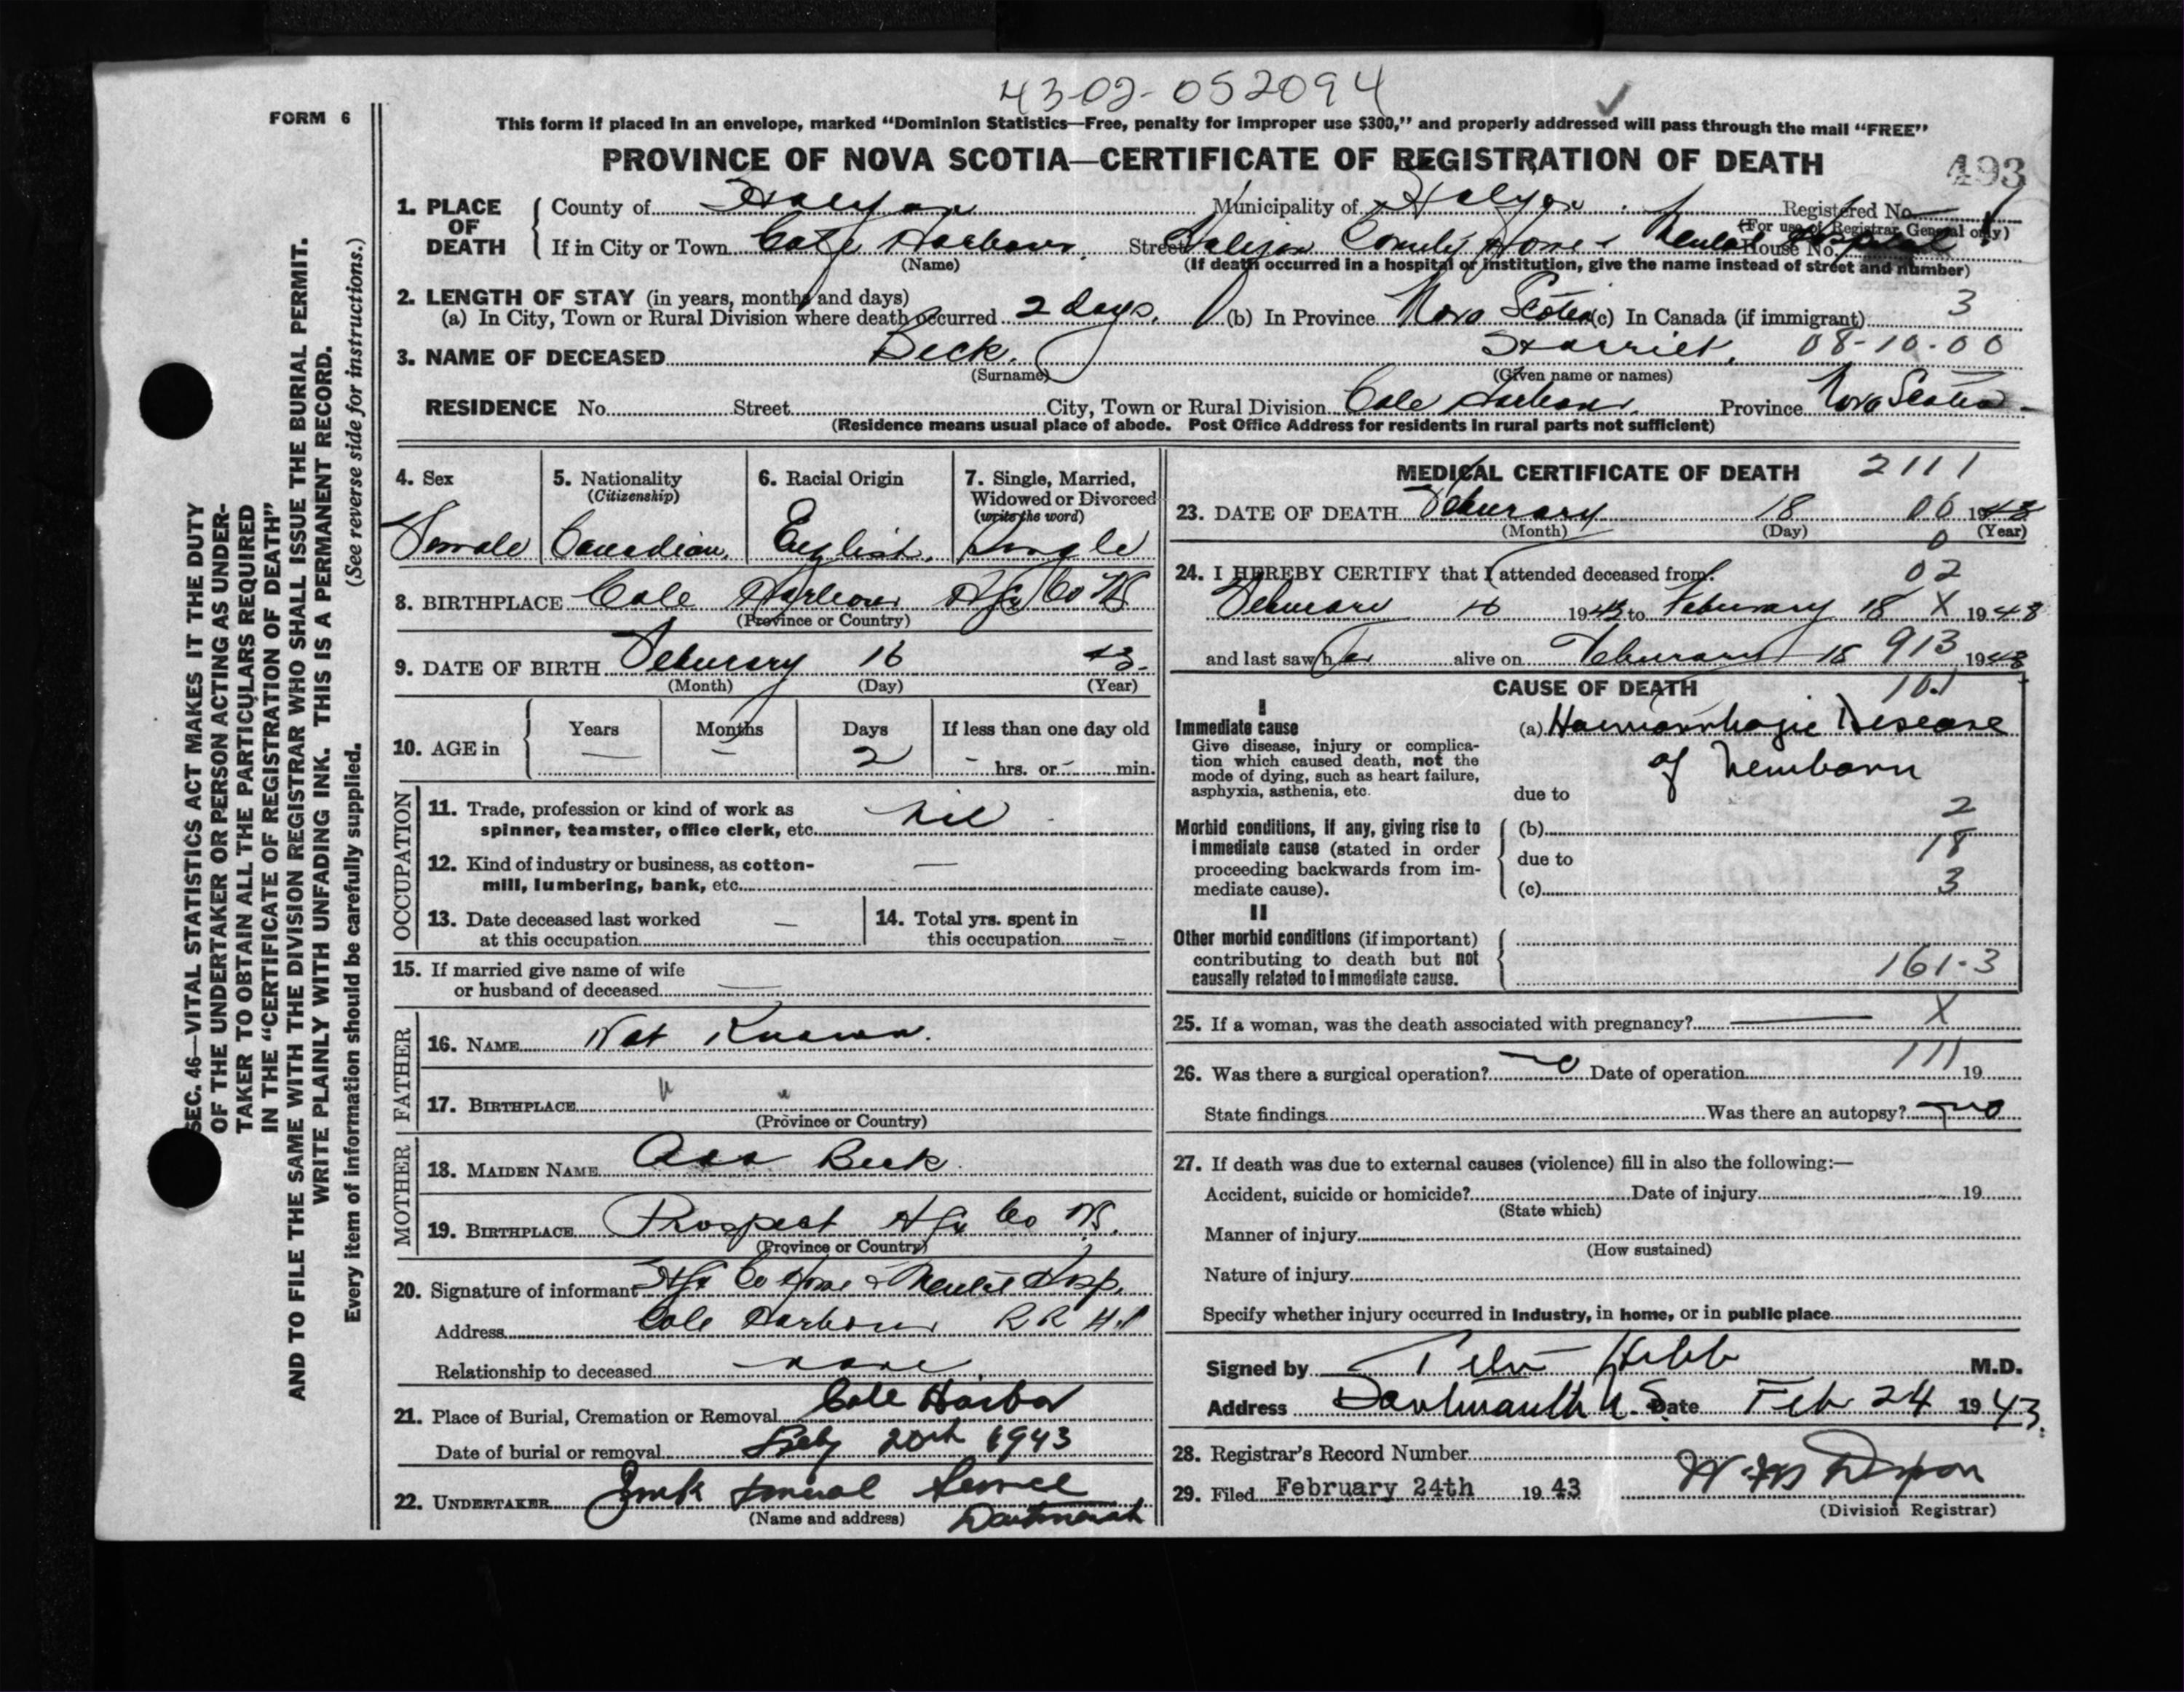 4302-052094
FORM 6
This form if placed in an envelope, marked “Dominion Statistics—Free, penalty for improper use $300,” and properly addressed will pass through the mail “FREE”
PROVINCE OF NOVA SCOTIA—CERTIFICATE OF REGISTRATION OF DEATH
493
1. PLACE OF DEATH
County of Halifax Municipality of Halifax Registered No.
(For use of Registrar General only)
If in City or Town Cole Harbour Street Halifax County Home & Mental Hospital House No.
(Name) (If death occurred in a hospital or institution, give the name instead of street and number)
2. LENGTH OF STAY (in years, months and days)
(a) In City, Town or Rural Division where death occurred 2 days. (b) In Province Nova Scotia (c) In Canada (if immigrant) 3
3. NAME OF DECEASED Beck. Harriet. 08-10-00
(Surname) (Given name or names)
RESIDENCE No. Street City, Town or Rural Division Cole Harbour. Province Nova Scotia
(Residence means usual place of abode. Post Office Address for residents in rural parts not sufficient)
4. Sex 5. Nationality (Citizenship) 6. Racial Origin 7. Single, Married, Widowed or Divorced (write the word)
Female Canadian. English. Single
8. BIRTHPLACE Cole Harbour Hfx Co NS
(Province or Country)
9. DATE OF BIRTH Feburary 16 43-
(Month) (Day) (Year)
10. AGE in Years Months Days If less than one day old
— – 2 - hrs. or - min.
OCCUPATION
11. Trade, profession or kind of work as
spinner, teamster, office clerk, etc. nil
12. Kind of industry or business, as cotton-
mill, lumbering, bank, etc. —
13. Date deceased last worked
at this occupation —
14. Total yrs. spent in
this occupation –
15. If married give name of wife
or husband of deceased —
FATHER
16. NAME Not Known.
17. BIRTHPLACE " "
(Province or Country)
MOTHER
18. MAIDEN NAME Ada Beck.
19. BIRTHPLACE Prospect Hfx Co NS.
(Province or Country)
20. Signature of informant Hfx Co Home & Mental Hosp.
Address Cole Harbour RR #1
Relationship to deceased none.
21. Place of Burial, Cremation or Removal Cole Harbor
Date of burial or removal Feby 20th 1943
22. UNDERTAKER Funeral Service
(Name and address) Dartmouth
MEDICAL CERTIFICATE OF DEATH 2111
23. DATE OF DEATH Feburary 18 06 1943
(Month) (Day) (Year)
0
24. I HEREBY CERTIFY that I attended deceased from: 02
Feburary 16 1943 to Feburary 18 X 1943
and last saw her alive on Feburary 18 913 1943
CAUSE OF DEATH 10.1
I
Immediate cause
Give disease, injury or complica-
tion which caused death, not the
mode of dying, such as heart failure,
asphyxia, asthenia, etc.
(a) Haemorrhagic Disease
of Newborn
due to
2
Morbid conditions, if any, giving rise to
immediate cause (stated in order
proceeding backwards from im-
mediate cause).
(b)
18
due to
(c) 3
II
Other morbid conditions (if important)
contributing to death but not
causally related to immediate cause.
161-3
25. If a woman, was the death associated with pregnancy? — X
26. Was there a surgical operation? no Date of operation 111 19
State findings Was there an autopsy? no
27. If death was due to external causes (violence) fill in also the following:—
Accident, suicide or homicide? Date of injury 19
(State which)
Manner of injury
(How sustained)
Nature of injury
Specify whether injury occurred in Industry, in home, or in public place
Signed by Hebb M.D.
Address Dartmouth N.S. Date Feb 24 1943.
28. Registrar's Record Number
29. Filed February 24th 1943
(Division Registrar)
SEC. 46—VITAL STATISTICS ACT MAKES IT THE DUTY
OF THE UNDERTAKER OR PERSON ACTING AS UNDER-
TAKER TO OBTAIN ALL THE PARTICULARS REQUIRED
IN THE “CERTIFICATE OF REGISTRATION OF DEATH”
AND TO FILE THE SAME WITH THE DIVISION REGISTRAR WHO SHALL ISSUE THE BURIAL PERMIT.
WRITE PLAINLY WITH UNFADING INK. THIS IS A PERMANENT RECORD.
Every item of information should be carefully supplied. (See reverse side for instructions.)